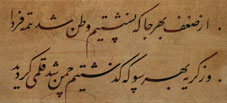 از ضعف بهر جا که نشستیم وطن شد
وز گریه بهر سو که گذشتیم چمن شد